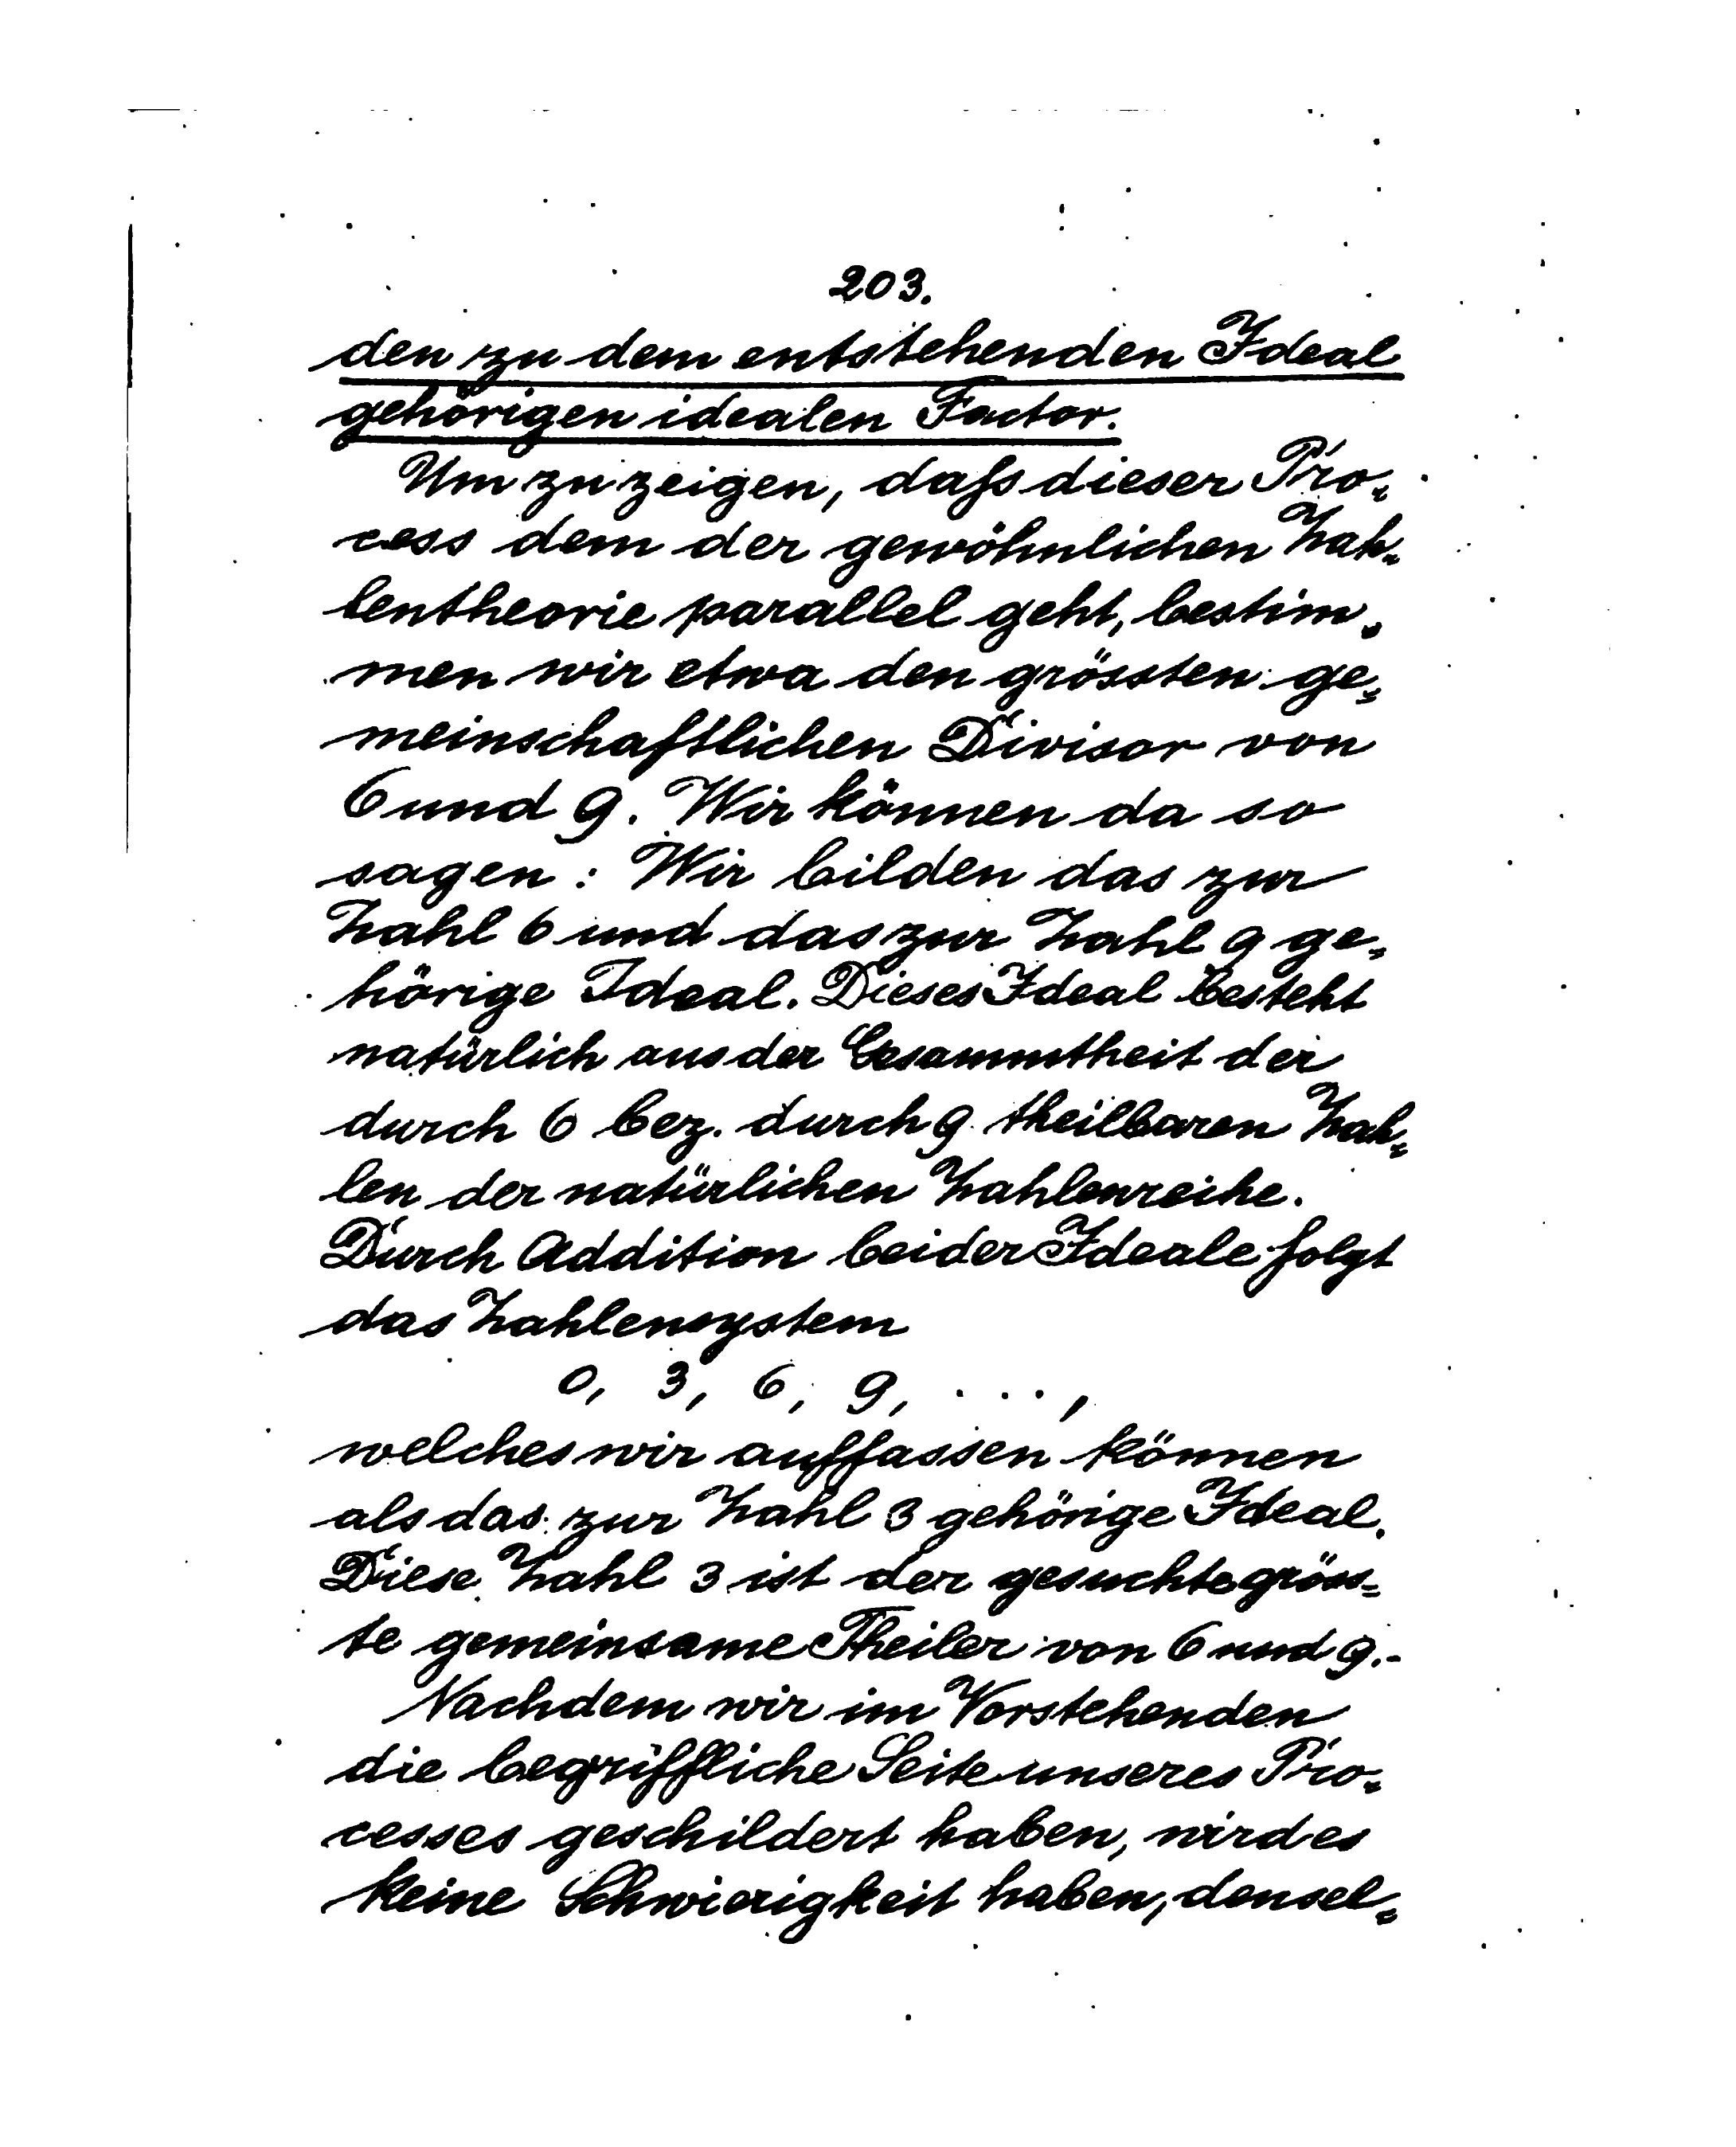 203.
den zu dem entstehenden Ideal
gehörigen idealen Factor.
Um zu zeigen, daſs dieser Pro-
cess dem der gewöhnlichen Zah-
lentheorie parallel geht, bestim-
men wir etwa den grössten ge-
meinschaftlichen Divisor von
6 und 9. Wir können da so
sagen: Wir bilden das zur
Zahl 6 und das zur Zahl 9 ge-
hörige Ideal. Dieses Ideal besteht
natürlich aus der Gesammtheit der
durch 6 bez. durch 9 theilbaren Zah-
len der natürlichen Zahlenreihe.
Durch Addition beider Ideale folgt
das Zahlensystem
0, 3, 6, 9, . . . ,
welches wir auffassen können
als das zur Zahl 3 gehörige Ideal.
Diese Zahl 3 ist der gesuchte gröss-
te gemeinsame Theiler von 6 und 9.-
Nachdem wir im Vorstehenden
die begriffliche Seite unseres Pro-
cesses geschildert haben, wird es
keine Schwierigkeit haben, densel-